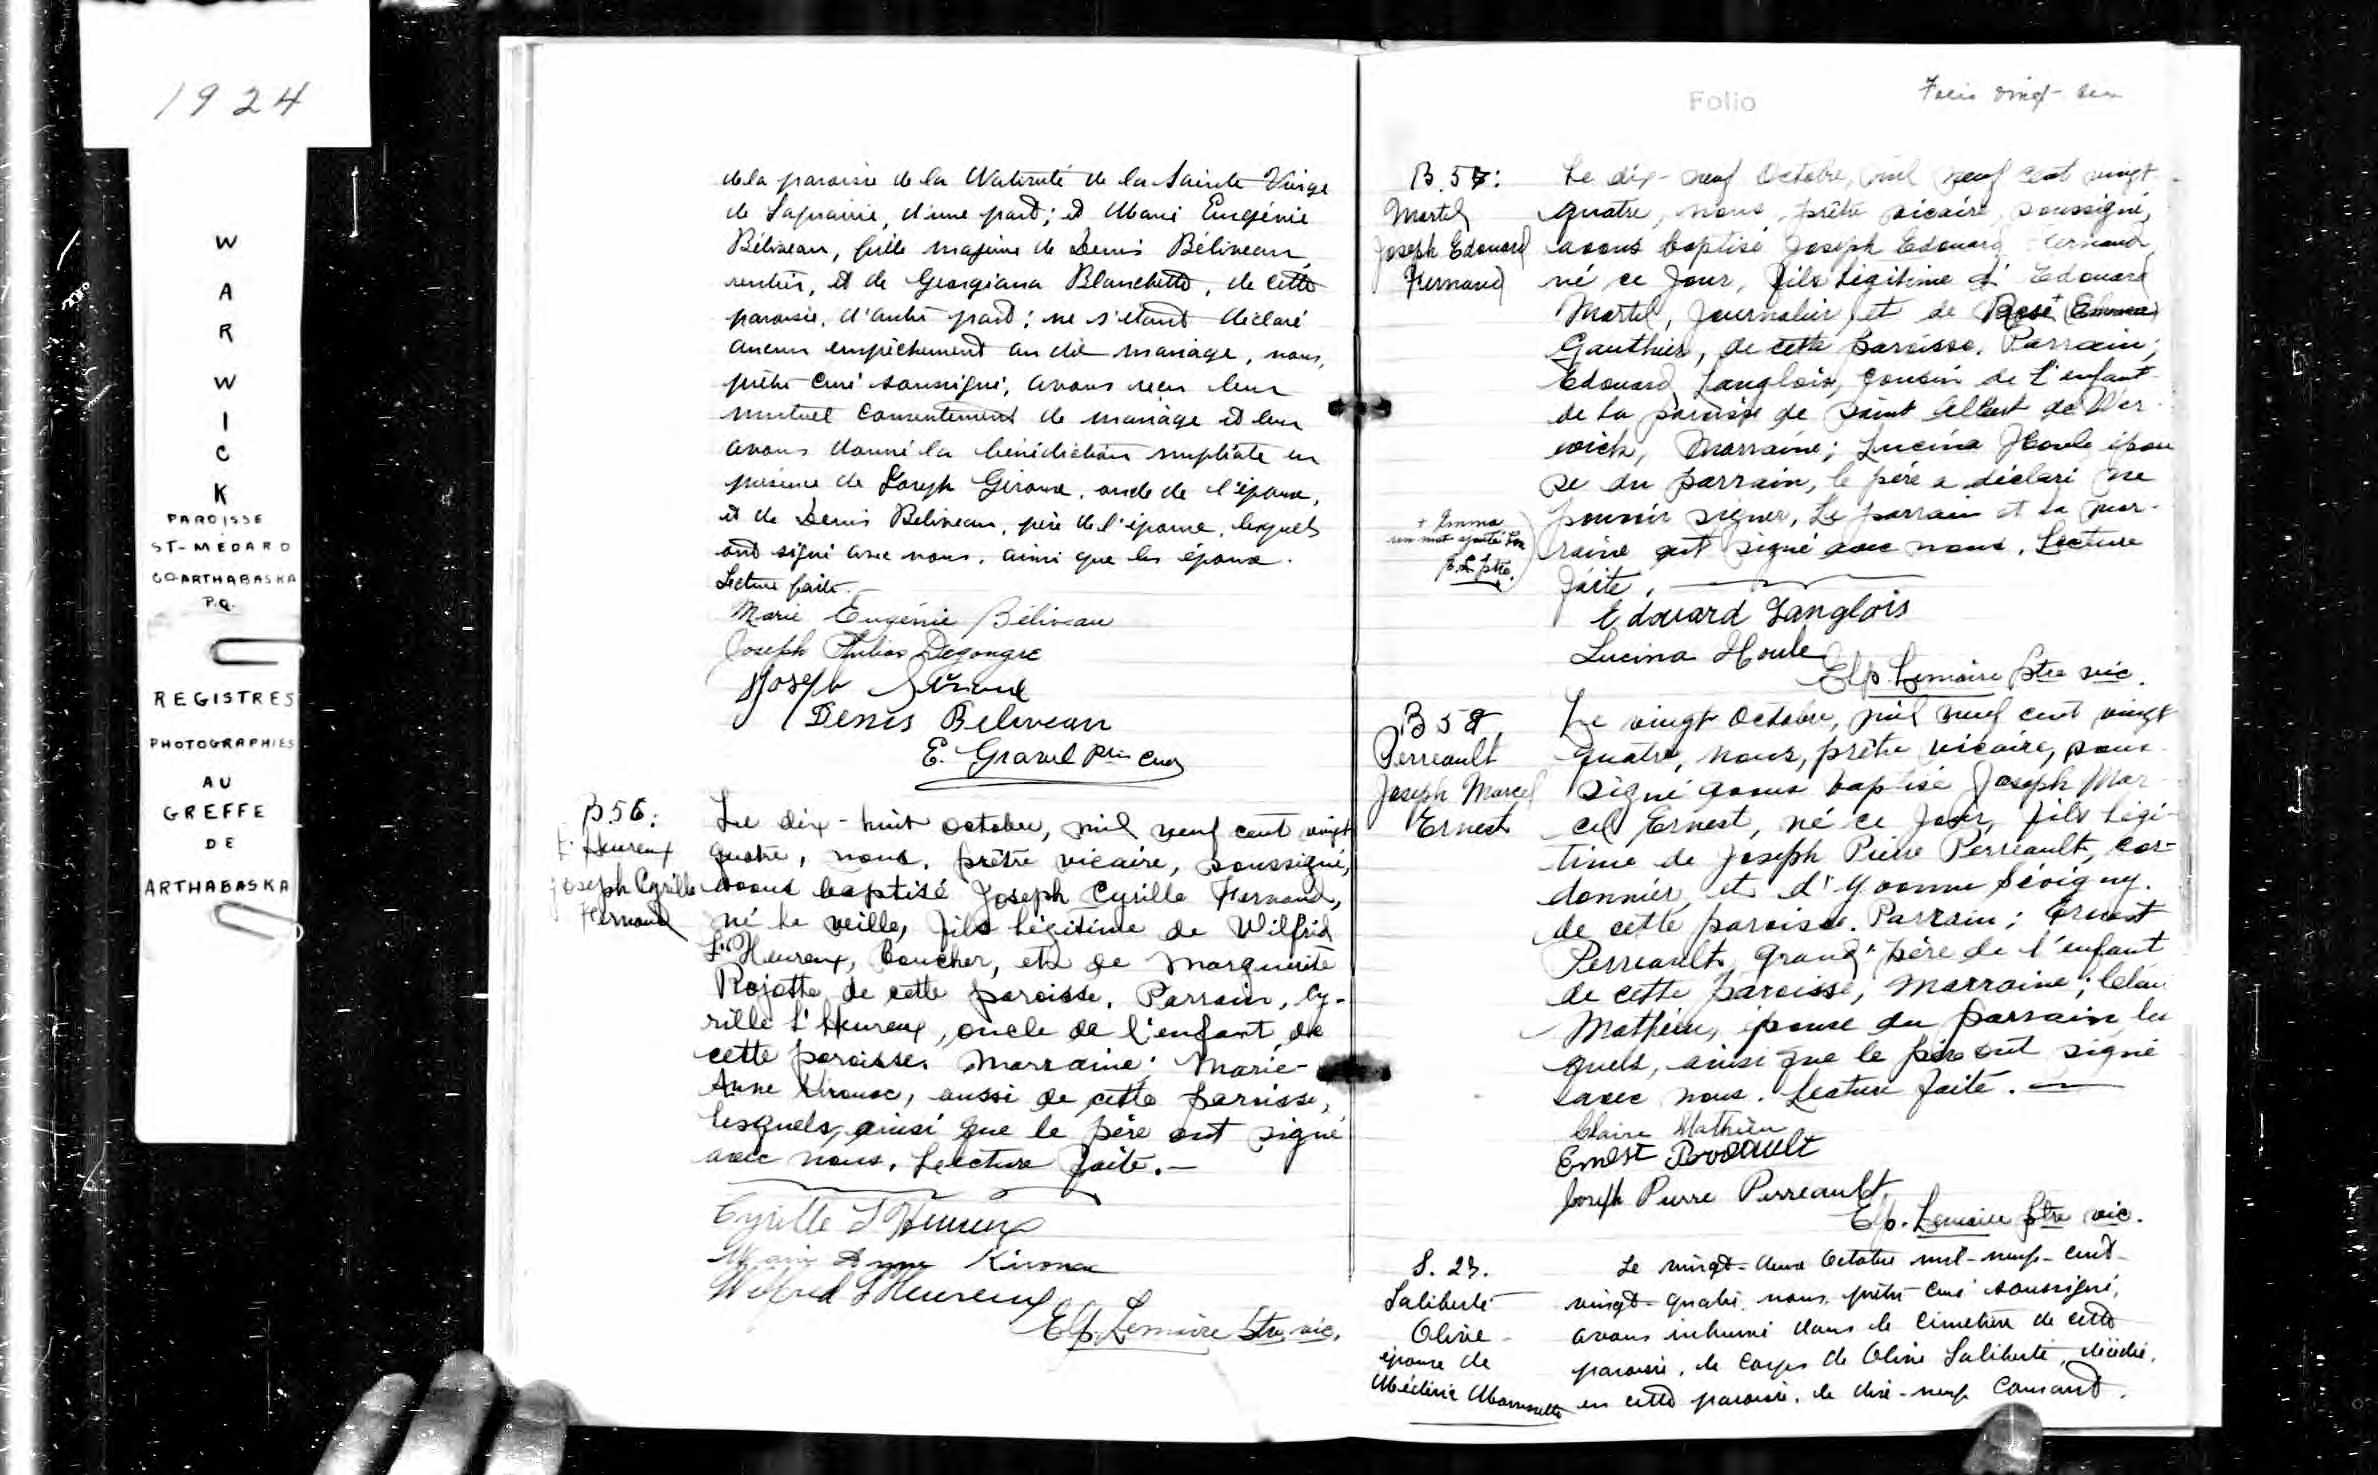 1924
WARWICK
PAROISSE
ST-MÉDARD
CO-ARTHABASKA
P.Q.
REGISTRES
PHOTOGRAPHIES
AU
GREFFE
DE
ARTHABASKA
de la paroisse de la Nativité de la Sainte Vierge
de Laprairie, d'une part; et Marie Eugénie
Béliveau, fille majeure de Denis Béliveau,
rentier, et de Georgiana Blanchette, de cette
paroisse, d'autre part; ne s'étant déclaré
aucun empêchement au dit mariage, nous,
prêtre curé soussigné, avons reçu leur
mutuel consentement de mariage et leur
avons donné la bénédiction nuptiale en
présence de Joseph Giroux, oncle de l'époux,
et de Denis Beliveau, père de l'épouse, lesquels
ont signé avec nous, ainsi que les époux.
Lecture faite.
Marie Eugénie Béliveau
Joseph
Joseph
Denis Beliveau
E. Gravel ptre curé
B.56:
L'Heureux
Joseph Cyrille
Fernand
Le dix-huit octobre, mil neuf cent vingt
quatre, nous, prêtre vicaire, soussigné,
avons baptisé Joseph Cyrille Fernand,
né la veille, fils légitime de Wilfrid
L'Heureux, boucher, et de Marguerite
Rajotte de cette paroisse. Parrain, Cy-
rille L'Heureux, oncle de l'enfant, de
cette paroisse. Marraine: Marie-
Anne Kirouac, aussi de cette paroisse,
lesquels, ainsi que le père ont signé
avec nous. Lecture faite.—
Cyrille L'Heureux
Marie Anne Kirouac
Wilfrid L'Heureux
Elp. Lemaire Ptre, vic.
Folio
Folio vingt-
B.57:
Martel
Joseph Edouard
Fernand
Le dix-neuf Octobre, mil neuf cent vingt-
quatre, nous, prêtre vicaire, soussigné,
avons baptisé Joseph Edouard Fernand
né ce jour, fils légitime d'Edouard
Martel, journalier, et de Rose +
Gauthier, de cette paroisse. Parrain;
Edouard Langlois, cousin de l'enfant
de la paroisse de Saint Albert de War-
wick, Marraine; Lucina Houle épou
se du parrain, le père a déclaré ne
pouvoir signer, Le parrain et la mar-
raine ont signé avec nous. Lecture
faite.
+ Emma
un mot ajouté
E.L. ptre.
Edouard Langlois
Lucina Houle
Elp. Lemaire ptre vic.
B 58
Perreault
Joseph Marcel
Ernest
Le vingt Octobre, mil neuf cent vingt
quatre, nous, prêtre vicaire, sous-
signé avons baptisé Joseph Mar-
cel Ernest, né ce jour, fils légi-
time de Joseph Pierre Perreault, cor-
donnier, et d'Yvonne Sévigny.
de cette paroisse. Parrain; Ernest
Perreault, grand-père de l'enfant
de cette paroisse; Marraine;
Mathieu, épouse du parrain les
quels, ainsi que le père ont signé
avec nous. Lecture faite.—
Claire Mathieu
Ernest Perreault
Joseph Pierre Perreault
Elp. Lemaire ptre vic.
S. 23.
Laliberté
Oline
épouse de
Médéric Marcotte
Le vingt-deux Octobre mil-neuf-cent-
vingt-quatre, nous, prêtre curé soussigné,
avons inhumé dans le cimetière de cette
paroisse, le corps de Oline Laliberté, décédée,
en cette paroisse, le dix-neuf courant.